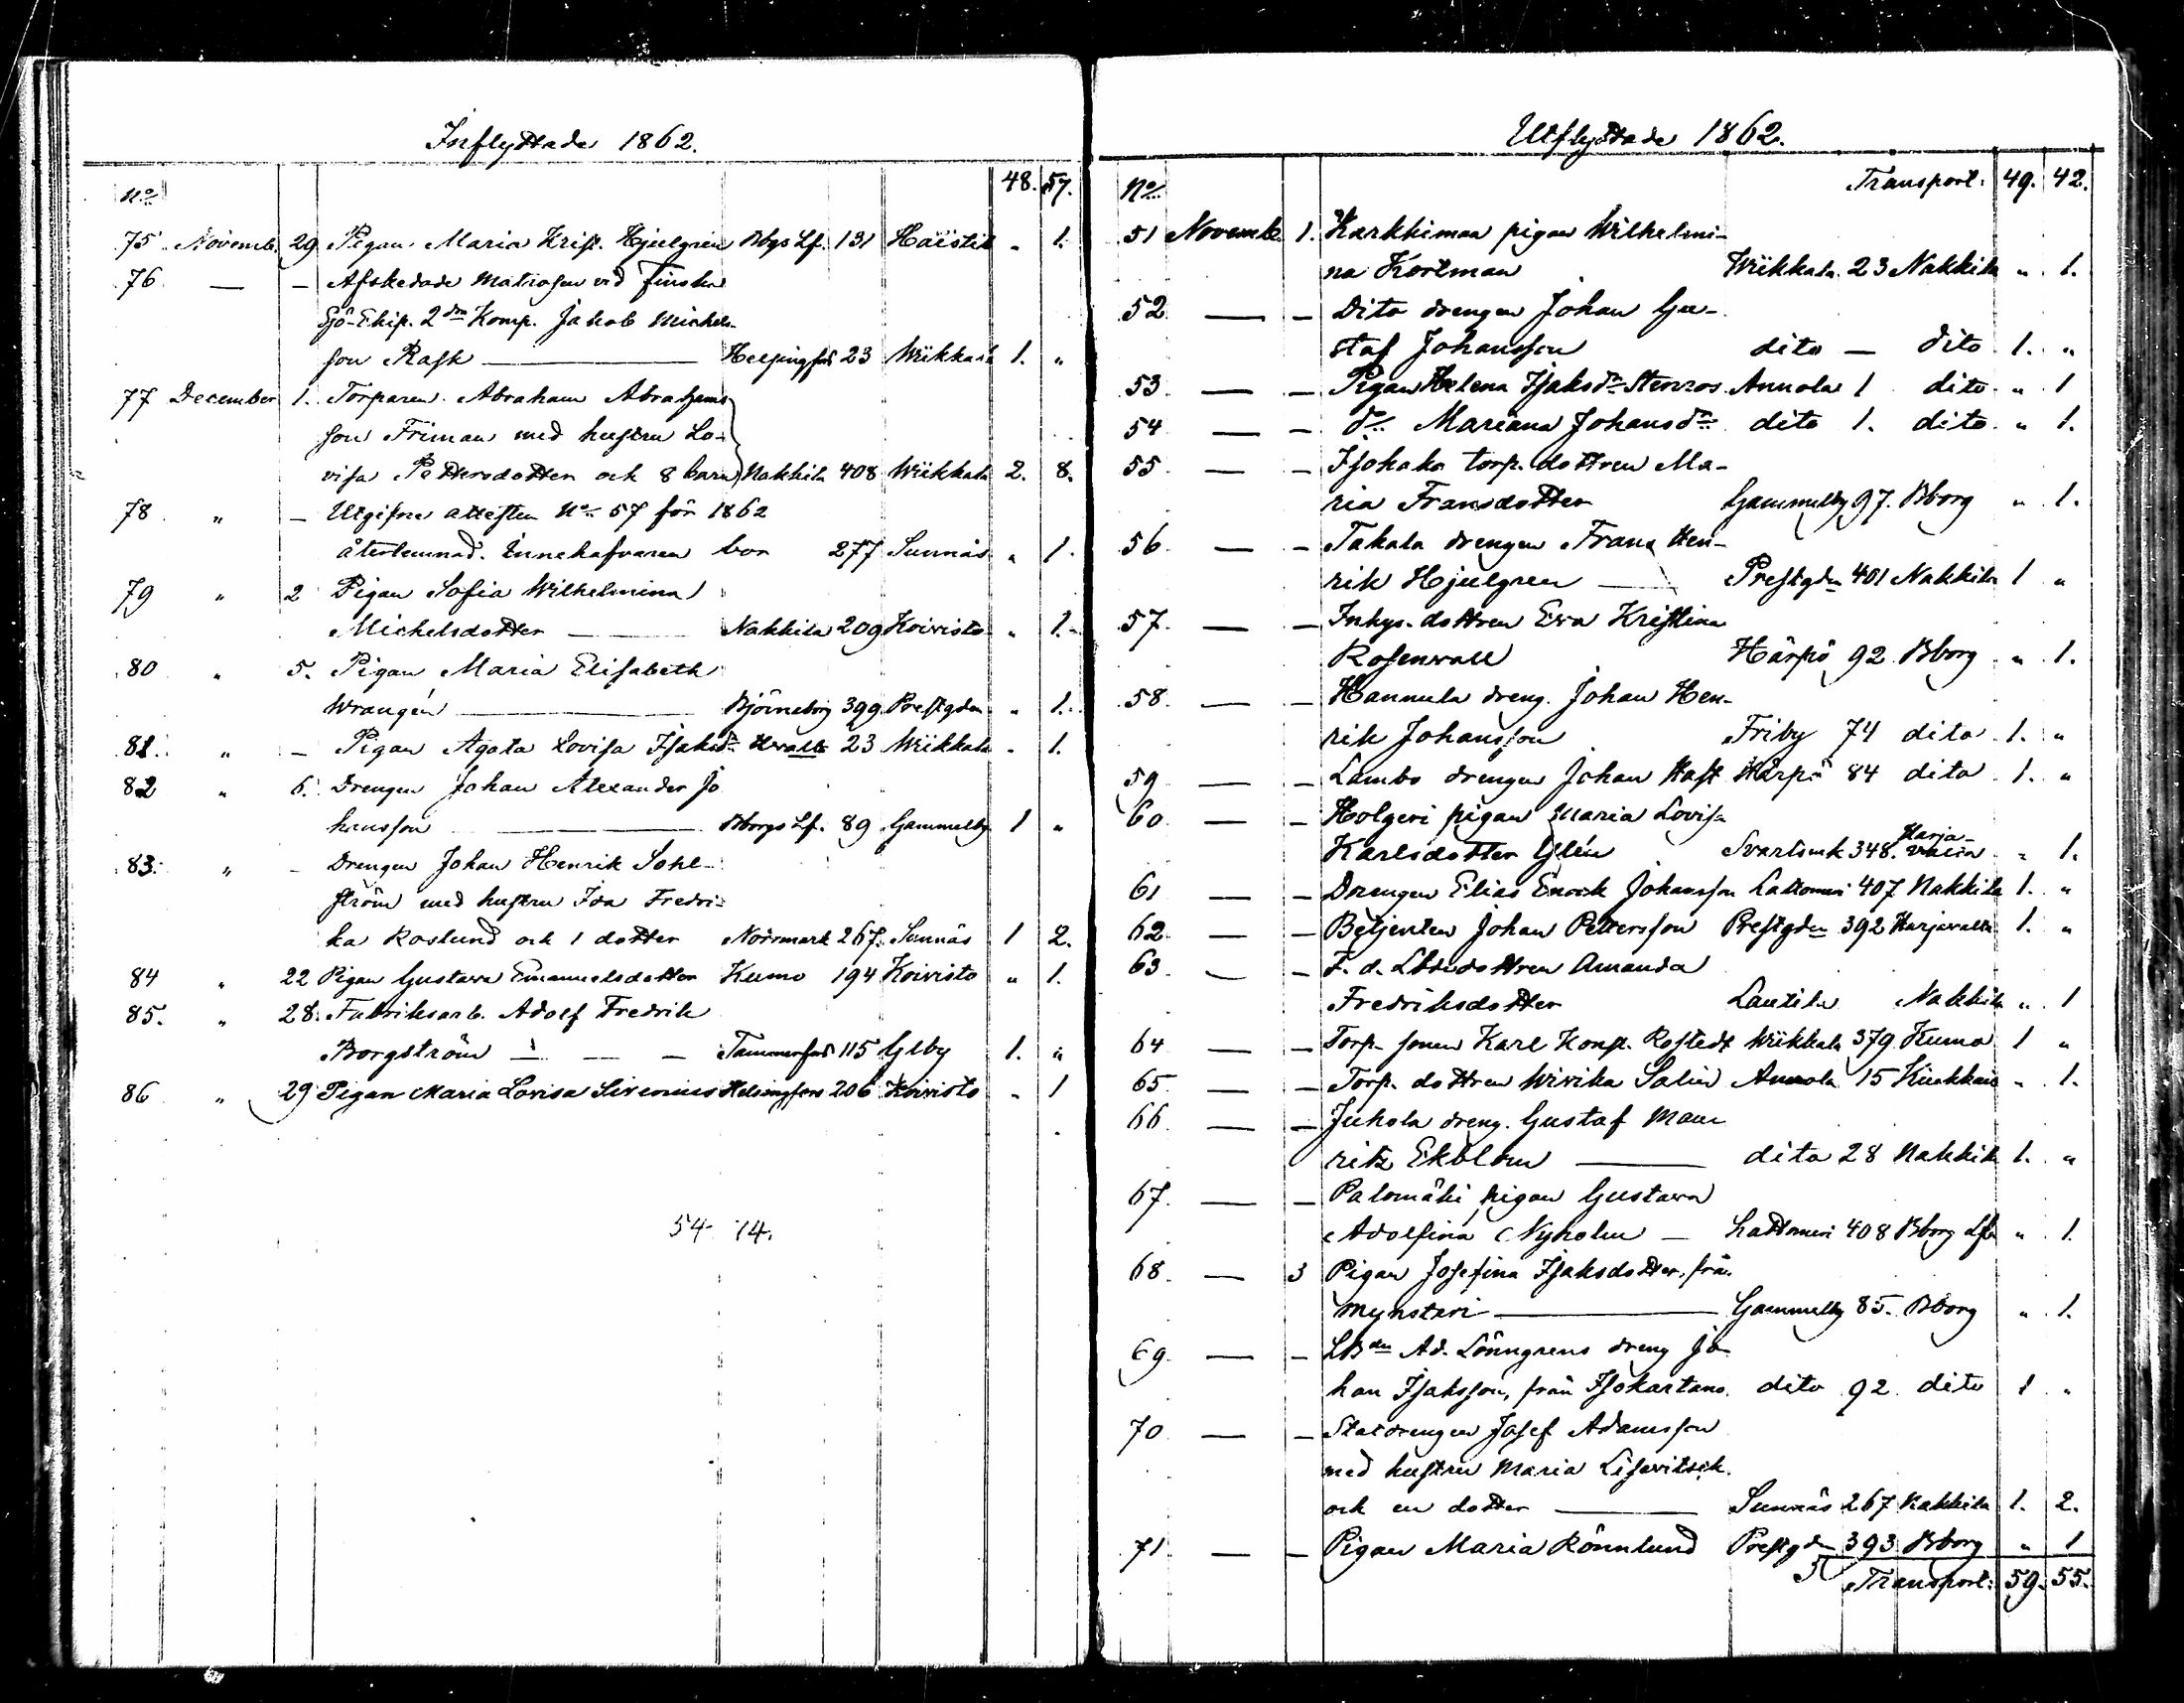 Inflyttade 1862.
No 48. 57.
75 Novemb. 29 Pigan Maria Krist. Hjulgrén Bbgs Lf. 131 Haistila " 1.
76 — — Afskedade Matrosen vid Finska
Sjö-Ekip. 2dra Komp. Jakob Michels-
son Rask — Helsingfors 23 Wiikkala 1. "
77 December 1. Torparen Abraham Abrahams-
son Friman med hustru Lo-
visa Pettersdotter och 8 barn Nakkila 408 Wiikkala 2. 8.
78 " — Utgifne attesten No 57 för 1862
återlemnad. Innehafvaren bor 277 Sunnäs " 1.
79 " 2 Pigan Sofia Wilhelmina
Michelsdotter — Nakkila 209 Koivisto " 1.
80 " 5. Pigan Maria Elisabeth
Wrangén — Björneborg 399 Prestgden " 1.
81. " — Pigan Agata Lovisa Isaksdr 23 Wiikkala " 1.
82 " 6. Drengen Johan Alexander Jo
hansson — Bborgs Lf. 89 Gammelby 1 "
83. " — Drengen Johan Henrik Sohl-
ström med hustru Ida Fredri-
ka Roslund och 1 dotter Norrmark 267 Sunnäs 1 2.
84 " 22 Pigan Gustava Emanuelsdotter Kumo 194 Koivisto " 1.
85. " 28. Fabriksarb. Adolf Fredrik
Borgström — — — Tammerfors 115 Ylby 1. "
86 " 29 Pigan Maria Lovisa Sirenius Helsingfors 206 Koivisto " 1
54 74.
Utflyttade 1862.
No Transport. 49. 42.
51 Novembr. 1. Karkkiman pigan Wilhelmi-
na Kortman Wiikkala 23 Nakkila " 1.
52 — — Dito drengen Johan Gu-
staf Johansson dito — dito 1. "
53 — — Pigan Helena Isaksdr Stenros Annola 1 dito " 1
54 — — dr Mariana Johansdr dito 1. dito " 1.
55 — — Isohaka torp. dottren Ma-
ria Fransdotter Gammelby 97. Bborg " 1.
56 — — Takala drengen Frans Hen-
rik Hjulgren — Prestgden 401 Nakkila 1 "
57. — — Inhys. dottren Eva Kristina
Rosenvall Härpö 92 Bborg " 1.
58. — — Hannula dreng. Johan Hen-
rik Johansson Friby 74 dito 1. "
59 — — Lambo drengen Johan Hast Härpö 84 dito 1. "
60 — — Holgeri pigan Maria Lovisa
Karlsdotter Glén Svartsmk 348. Harja-
valla " 1.
61 — — Drengen Elias Enock Johansson Lattomeri 407 Nakkila 1. "
62. — — Betjenten Johan Pettersson Prestgden 392 Harjavalla 1. "
63 — — F. d. Lbdsdottren Amanda
Fredriksdotter Lautila Nakkila " 1
64 — — Torp. sonen Karl Konst. Rostedt Wiikkala 379 Kumo 1 "
65 — — Torp. dottren Wivika Salin Annola 15 Kiukkais " 1.
66 — — Juhola dreng. Gustaf Mau
ritz Ekblom — dito 28 Nakkila 1. "
67. — — Palomäki pigan Gustava
Adolfina Nyholm — Lattomeri 408 Bborg Lfs " 1.
68. — 3 Pigan Josefina Isaksdotter, frå.
Mynsteri — Gammelby 85. Bborg " 1.
69 — — LBden Ad. Lönngrens dreng Jo
han Isaksson, från Isokartano. dito 92 dito 1 "
70 — — Statdrengen Josef Adamsson
med hustru Maria Lisevitsch.
och en dotter — Sunnäs 267 Nakkila 1. 2.
71. — — Pigan Maria Rönnlund Prestgden 393 Bborg " 1
Transport: 59. 55.